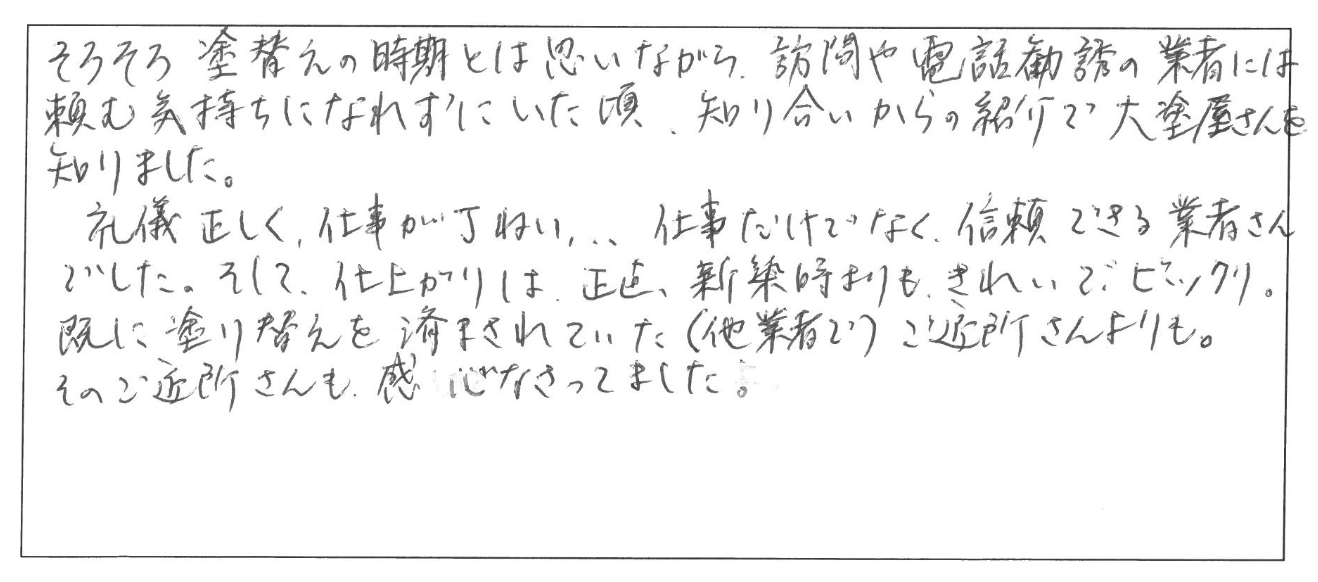 そろそろ塗替えの時期とは思いながら、訪問や電話勧誘の業者には
頼む気持ちになれずにいた頃、知り合いからの紹介で大塗屋さんを
知りました。
礼儀正しく、仕事が丁ねい、、、仕事だけでなく、信頼できる業者さん
でした。そして、仕上がりは、正直、新築時よりも、きれいで、ビックリ。
既に塗り替えを済まされていた（他業者で）ご近所さんよりも。
そのご近所さんも、感心なさってました。